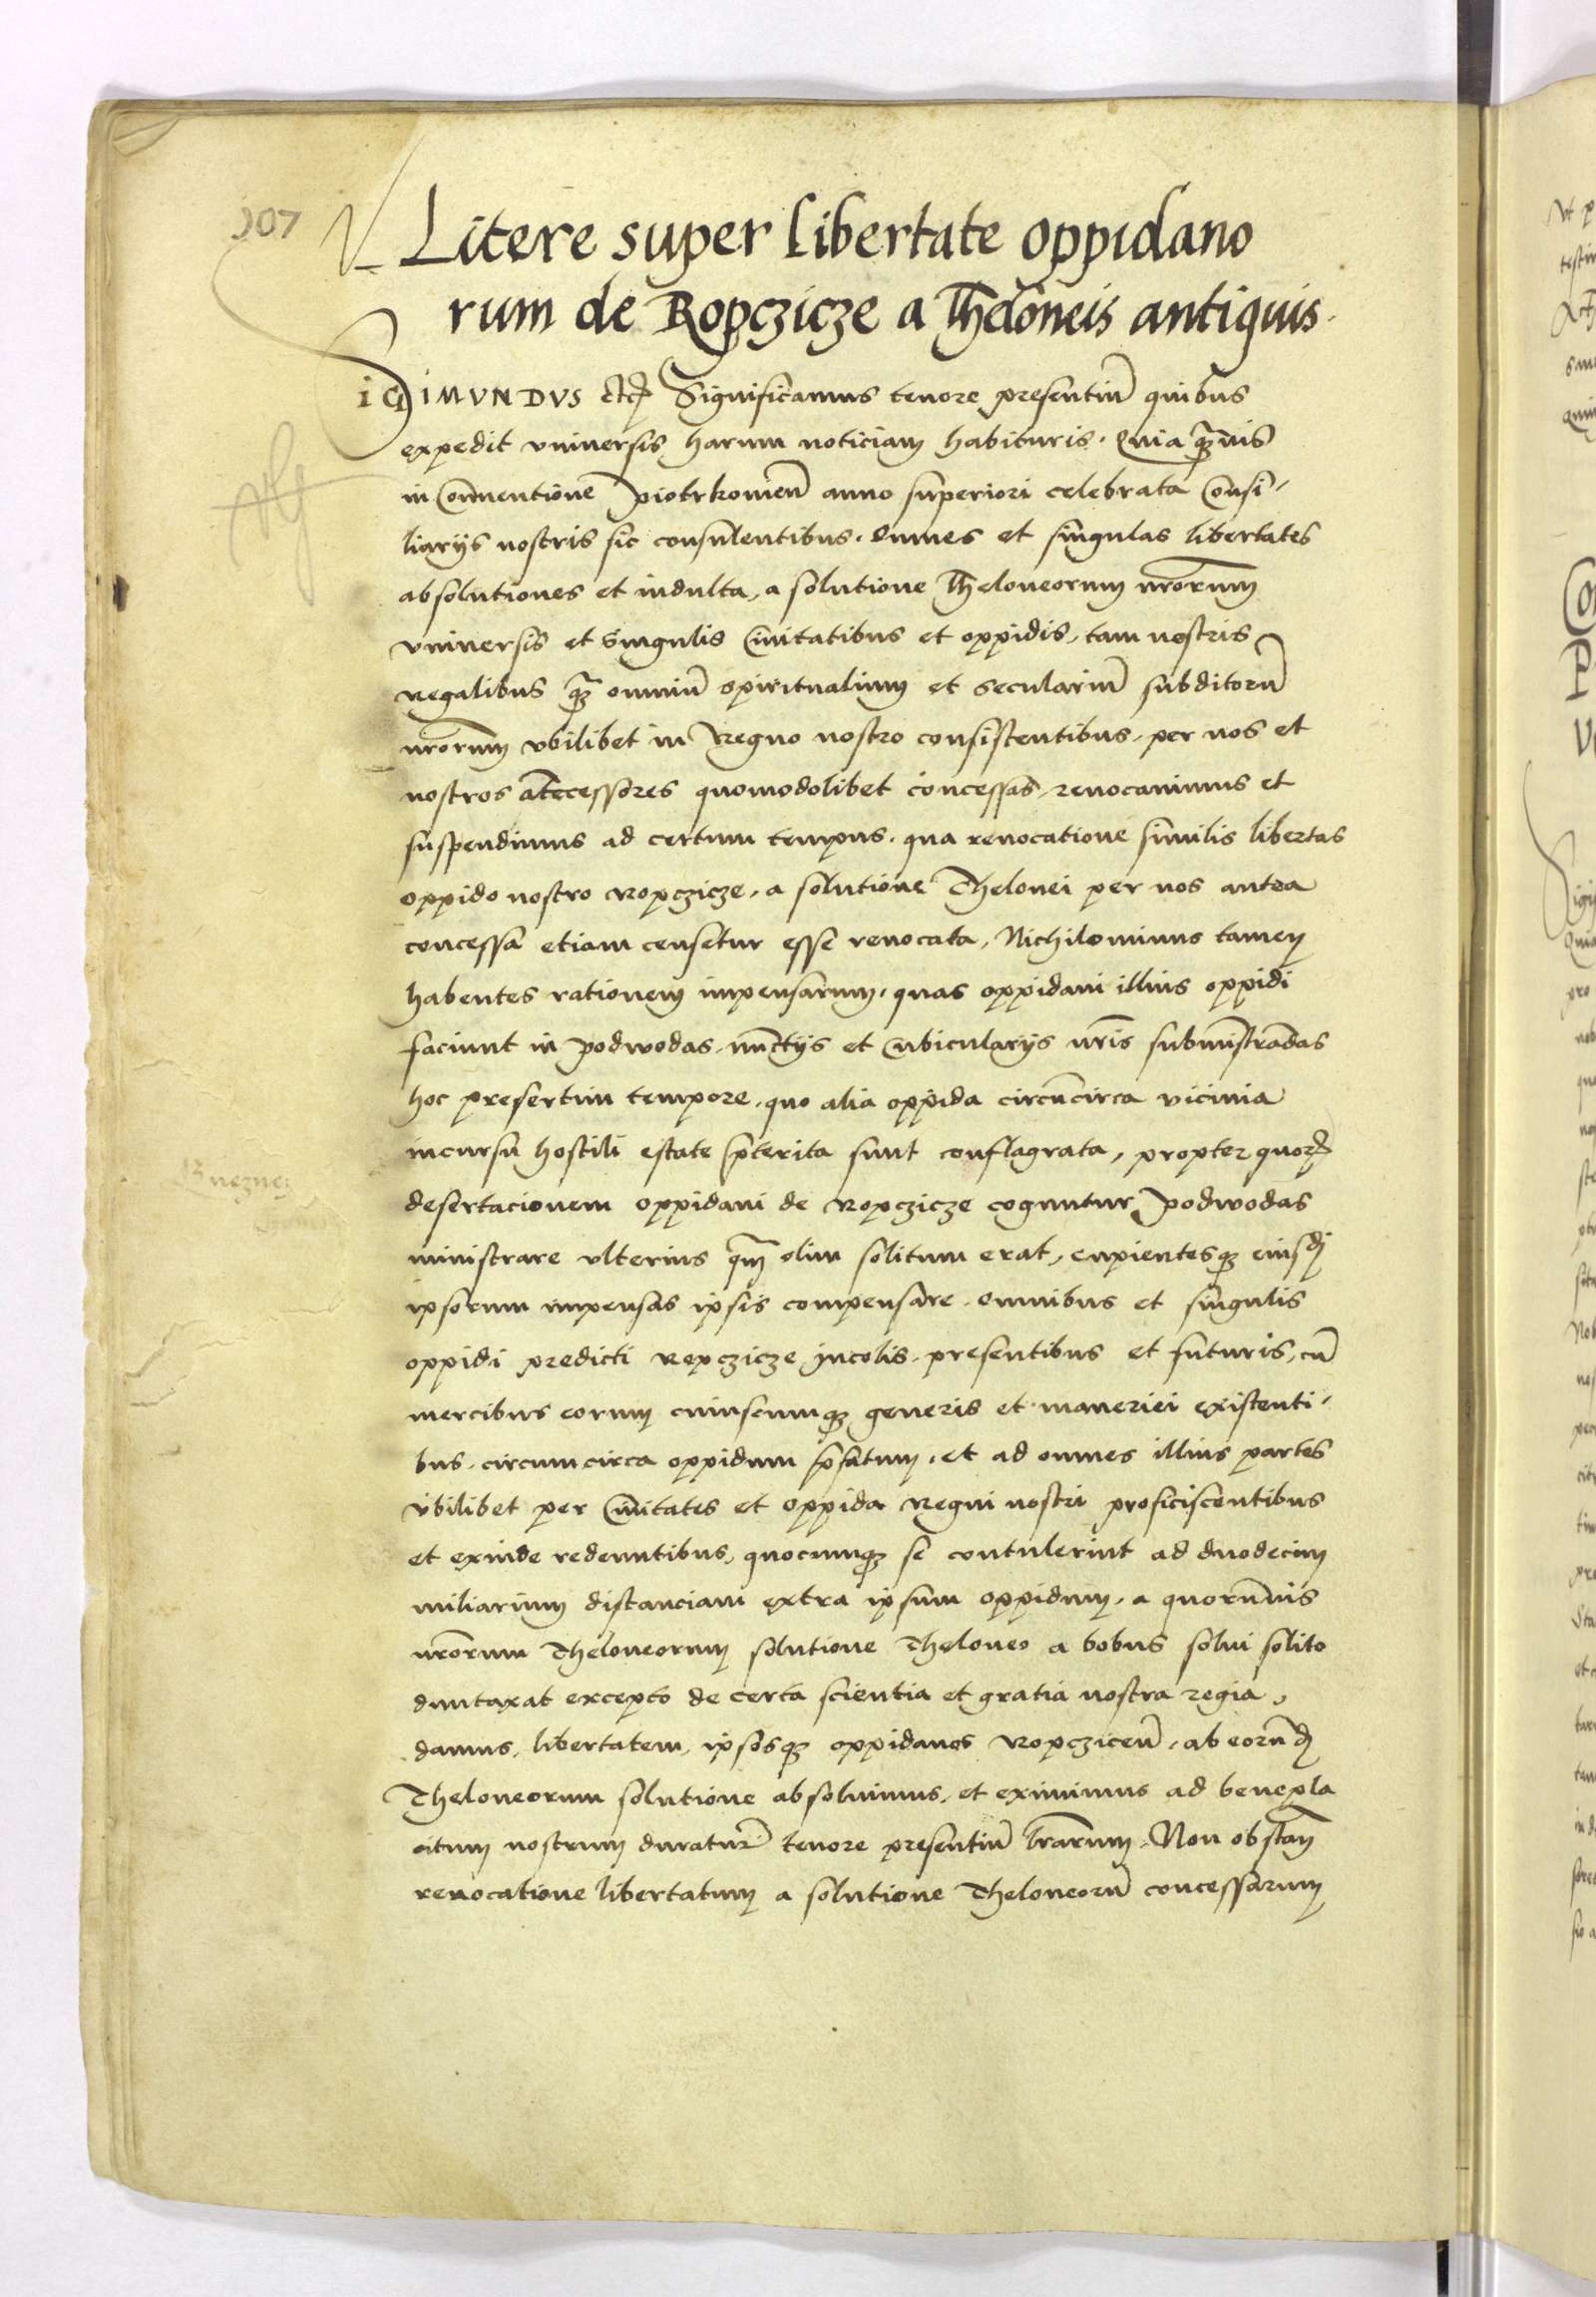 107
Litere super libertate oppidano
rum de Ropczicze a Theloneis antiquis.
SIGIMVNDVS etc Significamus tenore presentiũ quibus
expedit vniversis harum noticiam habituris. Quia q̃uis
in Conuentione Piotrkovien̄ anno superiori celebrata Consi-
liarijs nostris sic consulentibus. omnes et singulas libertates
absolutiones et indulta, a solutione Theloneorum nr̄orum
vniversis et singulis Ciuitatibus et oppidis, tam nostris
regalibus q̃ omniũ spiritualium et seculariũ subditorũ
nr̄orum vbilibet in Regno nostro consistentibus, per nos et
nostros ātecessores quomodolibet concessas, revocavimus et
suspendimus ad certum tempus. qua revocatione similis libertas
oppido nostro Ropczicze, a solutione Thelonei per nos antea
concessa etiam censetur esse revocata, Nichilominus tamen
habentes rationem impensarum, quas oppidani illius oppidi
faciunt in podwodas, nūctijs et Cubicularijs nr̄is submīstrādas
hoc presertim tempore, quo alia oppida circūcirca vicinia
incursu hostili estate p̄terita sunt conflagrata, propter quorꝫ
desertacionem oppidani de Ropczicze coguntur podwodas
ministrare vlterius q̃m olim solitum erat, cupientesqꝫ eiusdꝫ
ipsorum impensas ipsis compensare, omnibus et singulis
oppidi predicti Ropczicze incolis, presentibus et futuris, cũ
mercibus eorum cuiuscumqꝫ generis et maneriei existenti-
bus, circumcirca oppidum p̄fatum, et ad omnes illius partes
vbilibet per Ciuitates et oppida Regni nostri proficiscentibus
et exinde redeuntibus, quocumqꝫ se contulerint ad duodecim
miliarium distanciam extra ipsum oppidum, a quorumuis
nr̄orum Theloneorum solutione Theloneo a bobus solui solito
duntaxat excepto de certa scientia et gratia nostra regia,
damus, libertatem, ipsosqꝫ oppidanos Ropczicen̄, ab eorūdꝫ
Theloneorum solutione absoluimus, et eximimus ad benepla
citum nostrum duratur̄ tenore presentiũ lr̄arum. Non obstan̄
revocatione libertatum a solutione Theloneorũ concessarum